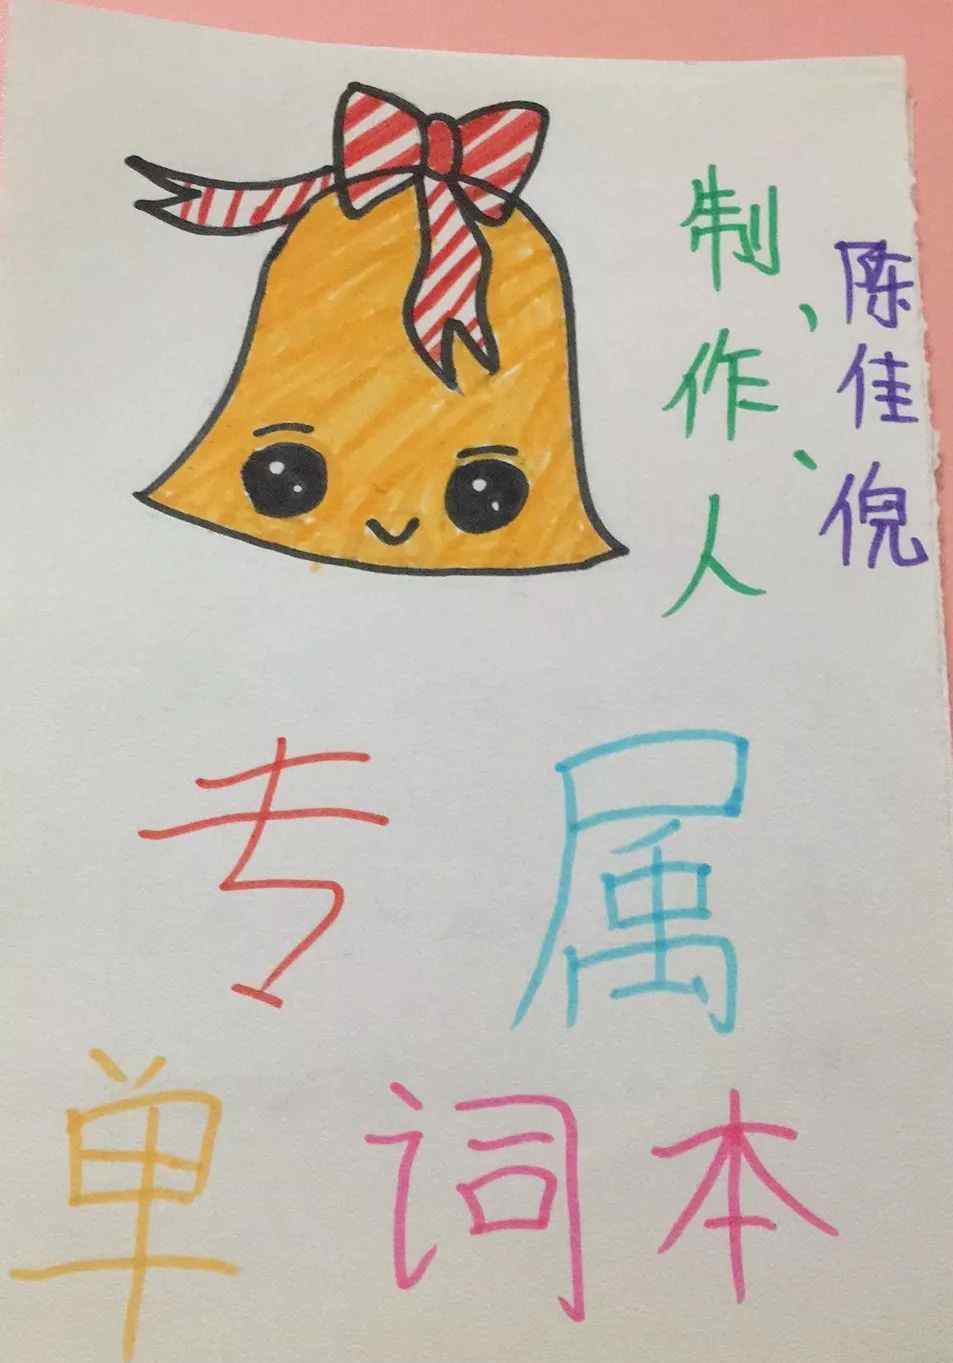 制作人
陈佳倪
专属
单词本